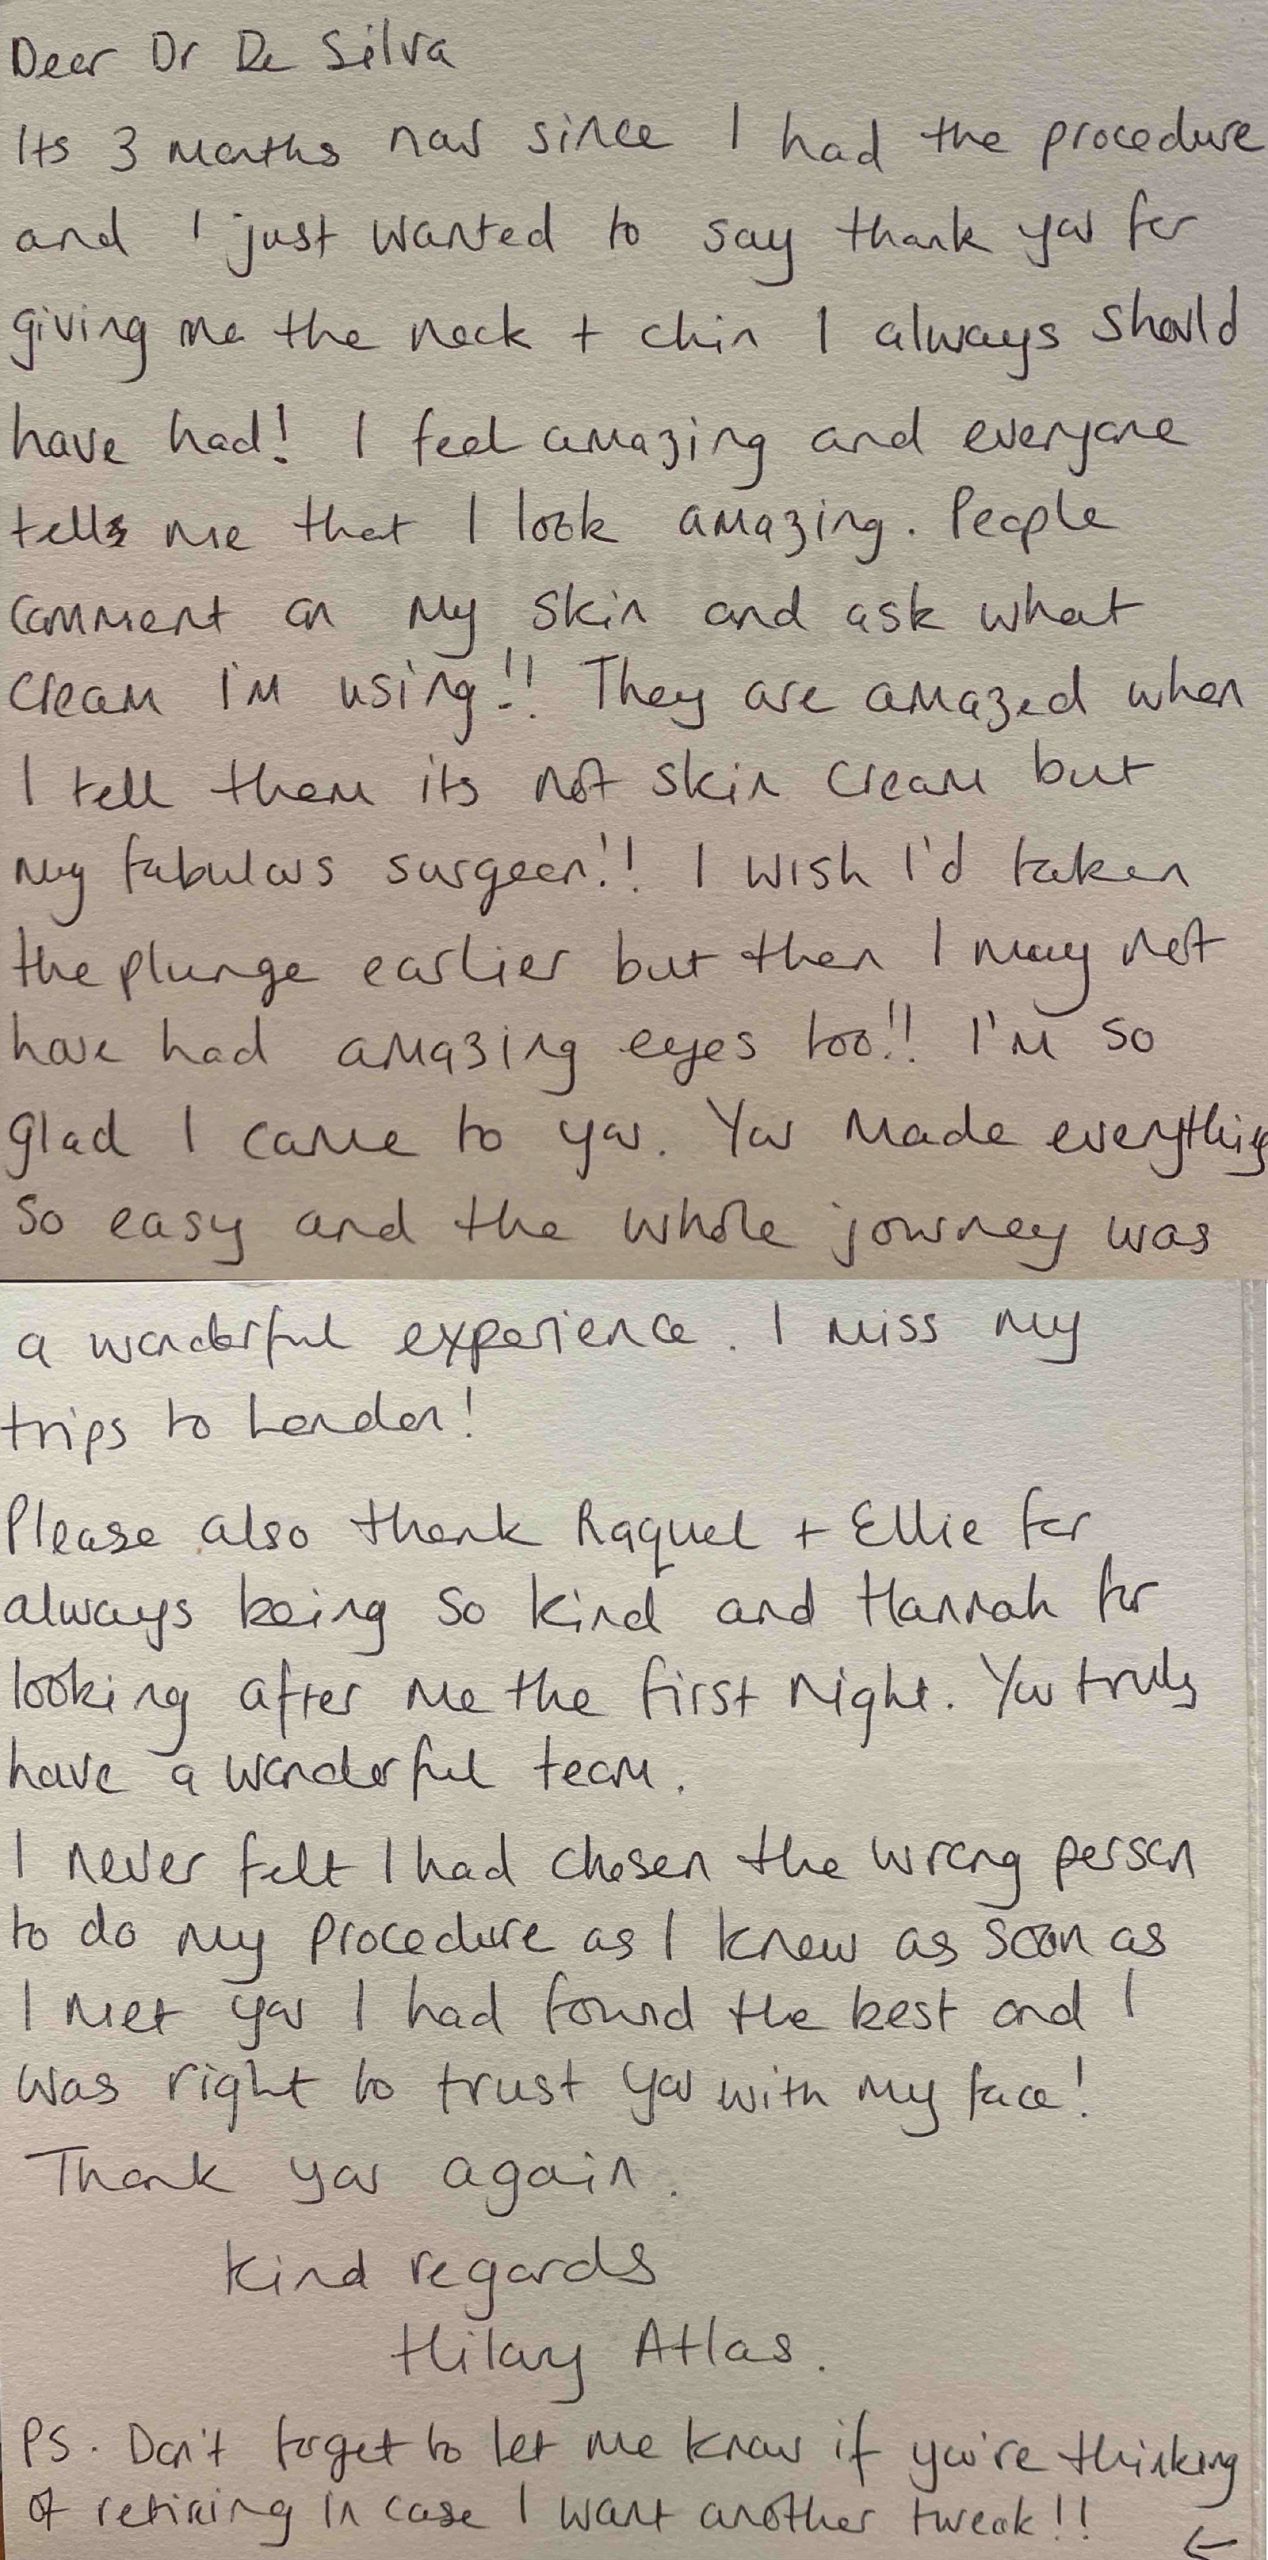 Dear Dr De Silva
Its 3 months now since I had the procedure
and I just wanted to say thank you for
giving me the neck + chin I always should
have had! I feel amazing and everyone
tells me that I look amazing. People
comment on my skin and ask what
cream I'm using!! They are amazed when
I tell them its not skin cream but
my fabulous surgeon!! I wish I'd taken
the plunge earlier but then I may not
have had amazing eyes too!! I'm so
glad I came to you. You made everything
so easy and the whole journey was
a wonderful experience. I miss my
trips to London!
Please also thank Raquel + Ellie for
always being so kind and Hannah for
looking after me the first night. You truly
have a wonderful team.
I never felt I had chosen the wrong person
to do my procedure as I knew as soon as
I met you I had found the best and I
was right to trust you with my face!
Thank you again.
Kind regards
Hilary Atlas.
PS. Don't forget to let me know if you're thinking
of retiring in case I want another tweak!!
←